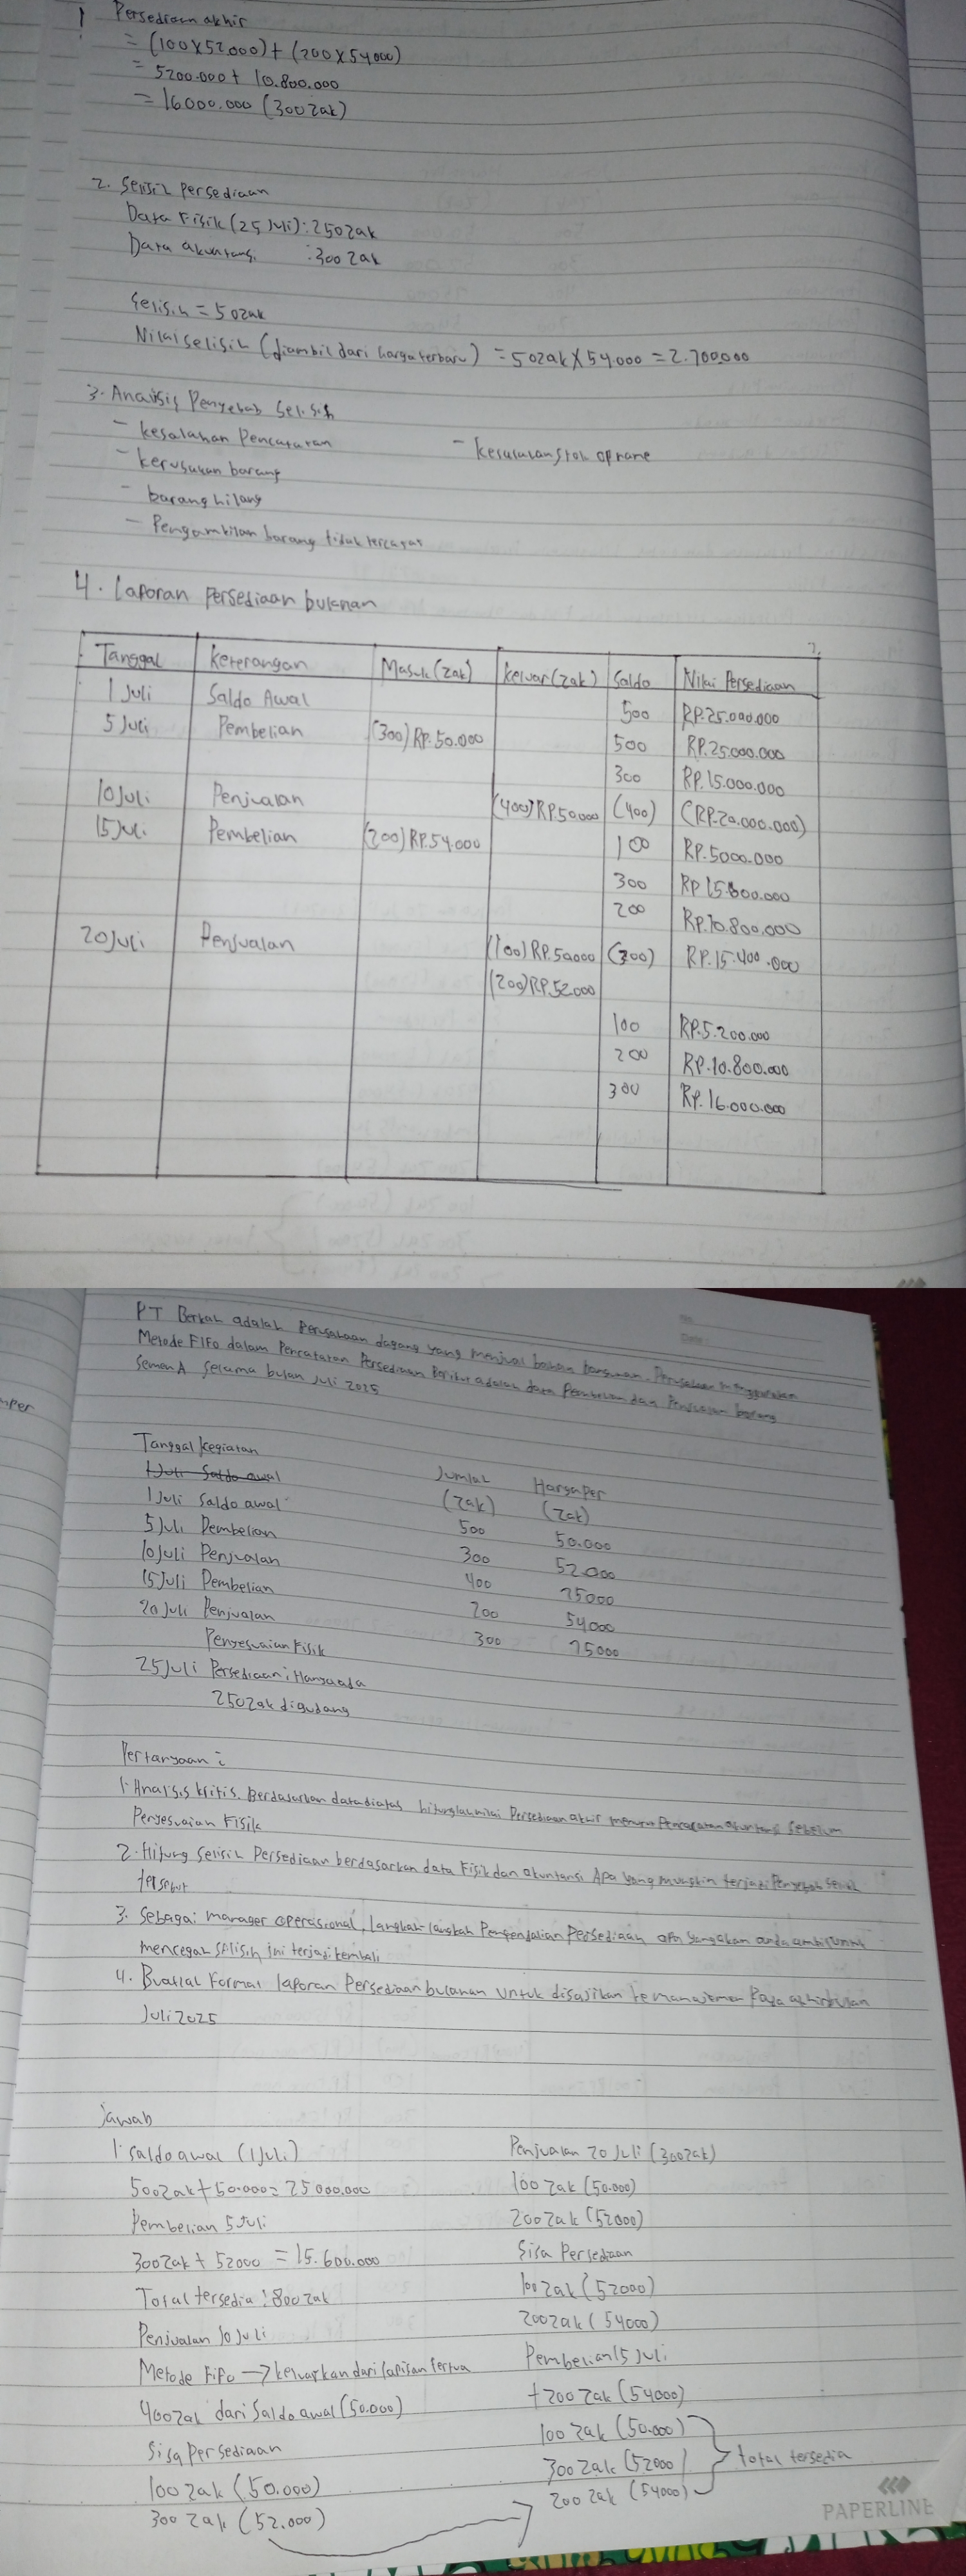 1 Persediaan akhir
= (100x52.000) + (200x54000)
= 5200.000 + 10.800.000
= 16000.000 (300 zak)
2. Selisih Persediaan
Data Fisik (25 Juli) : 250 zak
Data akuntansi : 300 zak
Selisih = 50 zak
Nilai selisih (diambil dari harga terbaru) = 50 zak X 54.000 = 2.700.000
3. Analisis Penyebab Selisih
- kesalahan Pencatatan - kesalahan stok opname
- kerusakan barang
- barang hilang
- Pengambilan barang tidak tercatat
4. Laporan Persediaan bulanan
Tanggal Keterangan Masuk (zak) Keluar (zak) Saldo Nilai Persediaan
1 Juli Saldo Awal 500 RP.25.000.000
5 Juli Pembelian (300) RP.50.000 500 RP.25.000.000
300 RP.15.000.000
10 Juli Penjualan (400) RP50000 (400) (RP.20.000.000)
15 Juli Pembelian (200) RP.54.000 100 RP.5000.000
300 RP 15.600.000
200 RP.10.800.000
20 Juli Penjualan (100) RP.50000 (300) RP.15.400.000
(200) RP.52000
100 RP.5.200.000
200 RP.10.800.000
300 RP.16.000.000
PT Berkah adalah Perusahaan dagang yang menjual bahan bangunan. Perusahaan menggunakan
Metode FIFO dalam Pencatatan Persediaan Berikut adalah data Pembelian dan Penjualan barang
Semen A selama bulan Juli 2025
Tanggal kegiatan Jumlah Harga Per
1 Juli Saldo awal (zak) (zak)
1 Juli Saldo awal 500 50.000
5 Juli Pembelian 300 52.000
10 Juli Penjualan 400 75000
15 Juli Pembelian 200 54000
20 Juli Penjualan 300 75000
Penyesuaian Fisik
25 Juli Persediaan : Hanya ada
250 zak digudang
Pertanyaan :
1. Analisis kritis. Berdasarkan data diatas hitunglah nilai Persediaan akhir menurut Pencatatan akuntansi sebelum
Penyesuaian Fisik
2. Hitung Selisih Persediaan berdasarkan data Fisik dan akuntansi Apa yang mungkin terjadi Penyebab selisih
tersebut
3. Sebagai manager operasional, langkah-langkah Pengendalian Persediaan apa yang akan anda ambil untuk
mencegah selisih ini terjadi kembali
4. Buatlah Format laporan Persediaan bulanan untuk disajikan ke manajemen Pada akhir bulan
Juli 2025
Jawab
1. Saldo awal (1 Juli)
500 zak + 50.000 = 25000.000
Pembelian 5 Juli
300 zak + 52000 = 15.600.000
Total tersedia : 800 zak
Penjualan 10 Juli
Metode FIFO → keluarkan dari lapisan tertua
400 zak dari saldo awal (50.000)
Sisa Persediaan
100 zak (50.000)
300 zak (52.000)
Penjualan 20 Juli (300 zak)
100 zak (50.000)
200 zak (52000)
Sisa Persediaan
100 zak (52000)
200 zak (54000)
Pembelian 15 Juli
+ 200 zak (54000)
100 zak (50.000)
300 zak (52000) total tersedia
200 zak (54000)
PAPERLINE